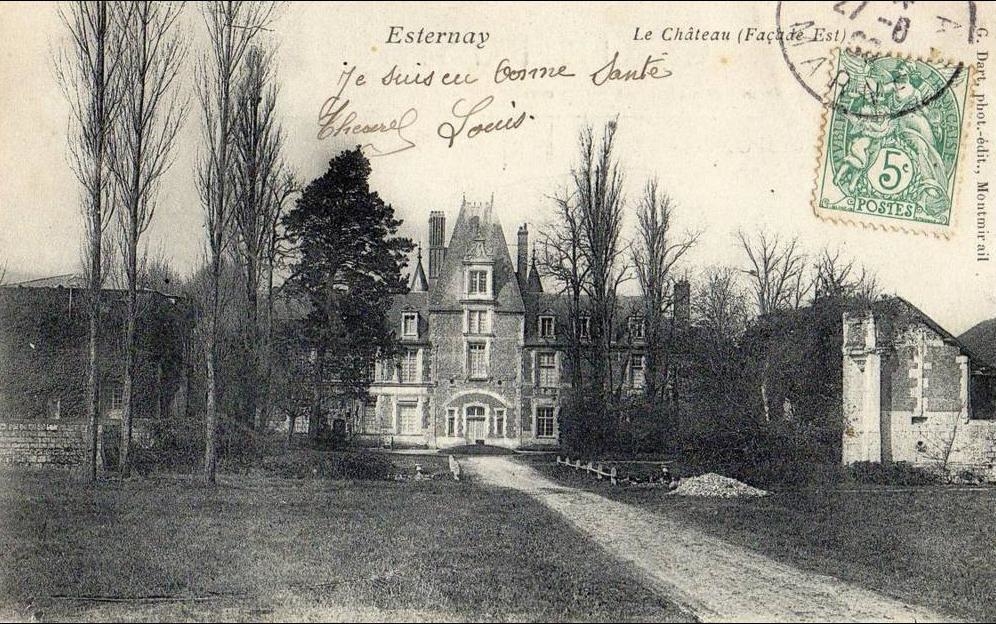 Esternay
Le Château (Façade Est)
Je suis en bonne Santé
Louis.
27 -8
MARNE
5c
POSTES
G. Dart, phot.-édit., Montmirail